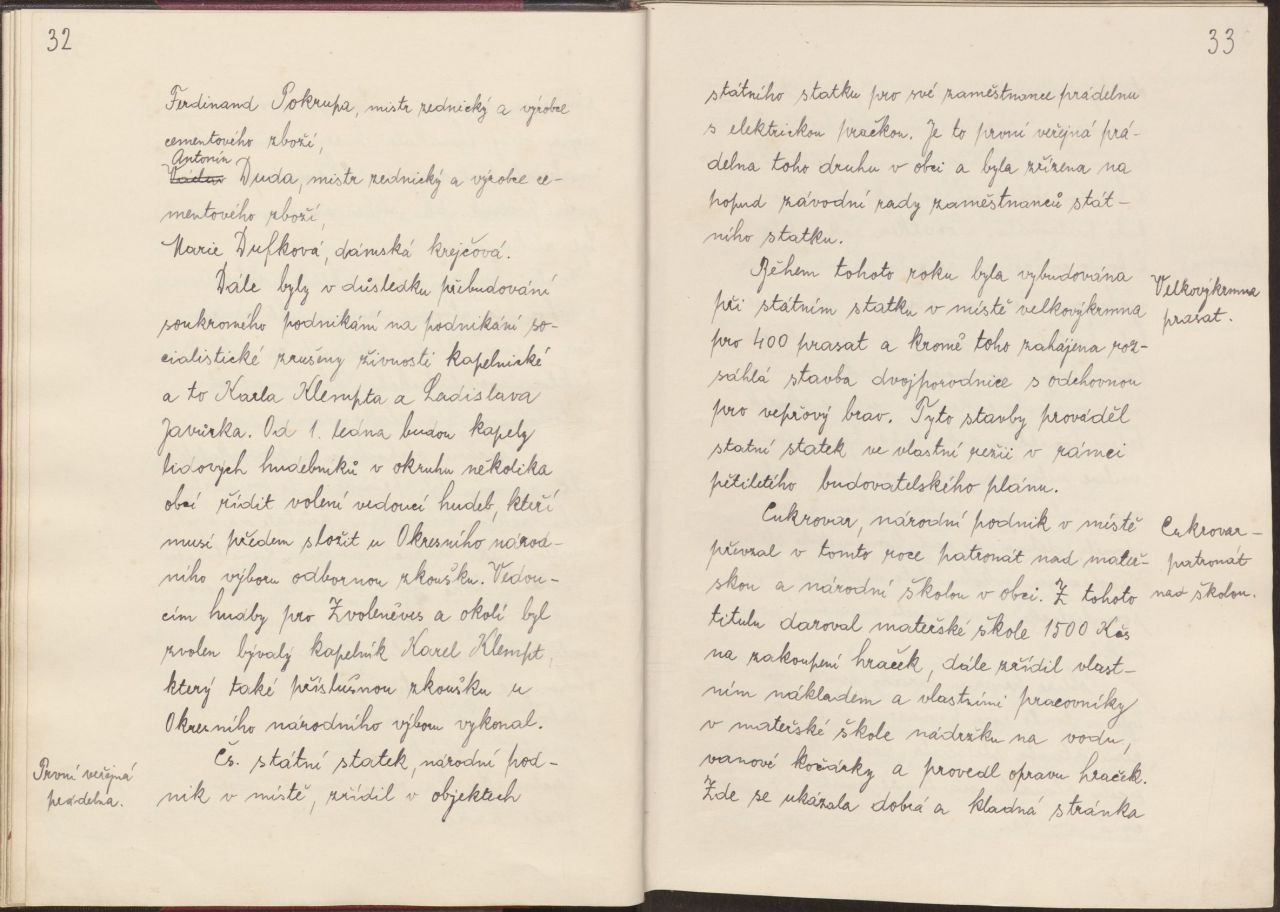 32
Ferdinand Pokrupa, mistr zednický a výrobce
cementového zboží,
Antonín
Václav Duda, mistr zednický a výrobce ce-
mentového zboží,
Marie Dufková, dámská krejčová.
Dále byly v důsledku přebudování
soukromého podnikání na podnikání so-
cialistické zrušeny živnosti kapelnické
a to Karla Klempta a Ladislava
Javůrka. Od 1. ledna budou kapely
lidových hudebníků v okruhu několika
obcí řídit volení vedoucí hudeb, kteří
musí předem složit u Okresního národ-
ního výboru odbornou zkoušku. Vedou-
cím hudby pro Zvoleněves a okolí byl
zvolen bývalý kapelník Karel Klempt,
který také příslušnou zkoušku u
Okresního národního výboru vykonal.
Čs. státní statek, národní pod-
nik v místě, zřídil v objektech
První veřejná
prádelna.
33
státního statku pro své zaměstnance prádelnu
s elektrickou pračkou. Je to první veřejná prá-
delna toho druhu v obci a byla zřízena na
popud závodní rady zaměstnanců stát-
ního statku.
Během tohoto roku byla vybudována
při státním statku v místě velkovýkrmna
pro 400 prasat a kromě toho zahájena roz-
sáhlá stavba dvojporodnice s odchovnou
pro vepřový brav. Tyto stavby prováděl
statní statek ve vlastní režii v rámci
pětiletého budovatelského plánu.
Cukrovar, národní podnik v místě
převzal v tomto roce patronát nad mateř-
skou a národní školou v obci. Z tohoto
titulu daroval mateřské škole 1500 Kčs
na zakoupení hraček, dále zřídil vlast-
ním nákladem a vlastními pracovníky
v mateřské škole nádržku na vodu,
vanové kočárky a provedl opravu hraček.
Zde se ukázala dobrá a kladná stránka
Velkovýkrmna
prasat.
Cukrovar-
patronát
nad školou.